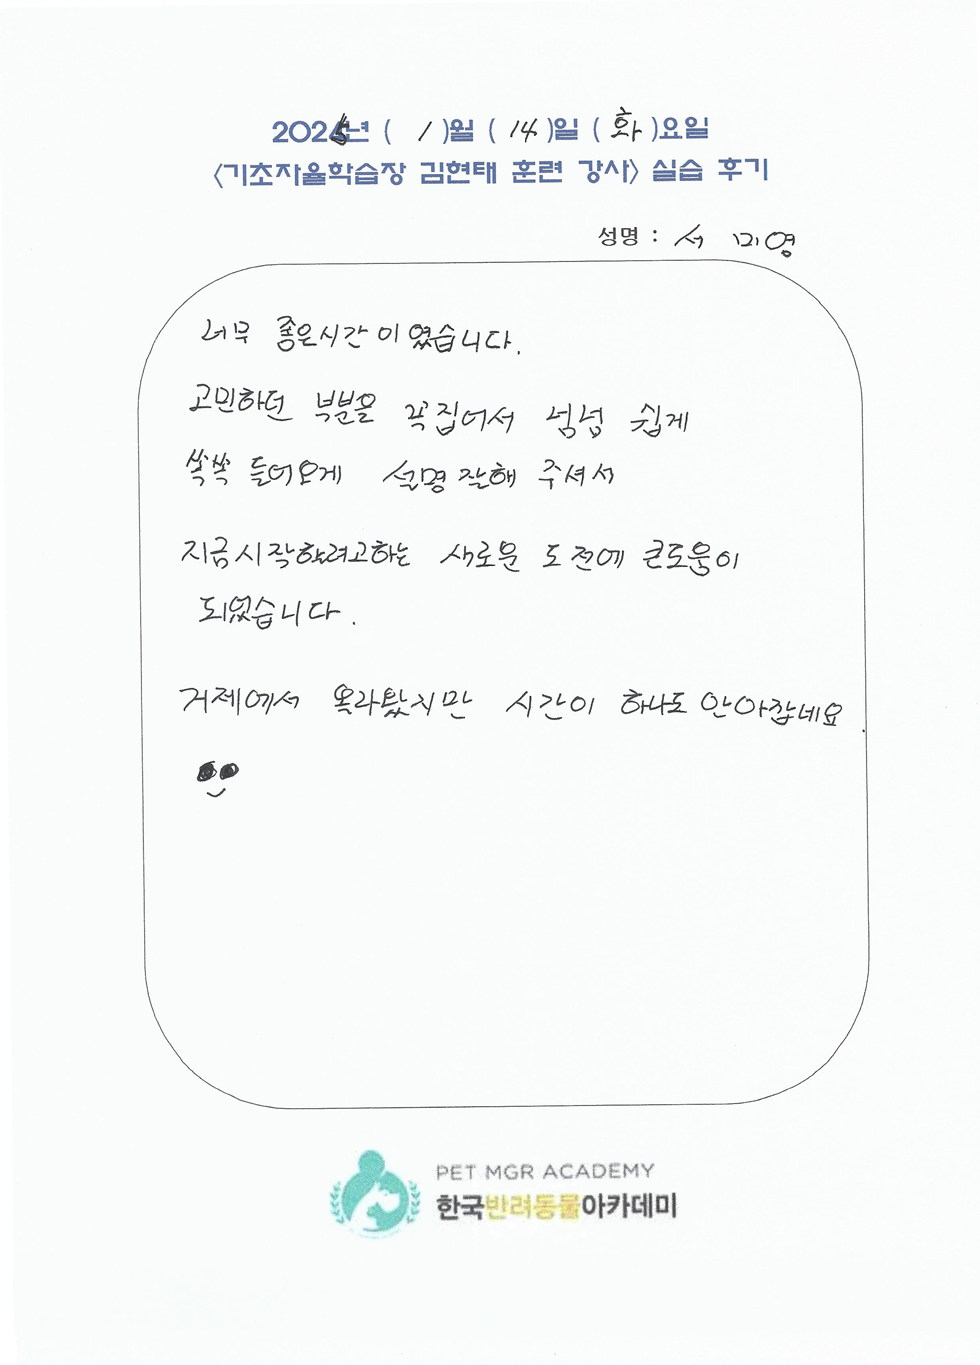 2025년 ( 1 )월 ( 14 )일 ( 화 )요일
〈기초자율학습장 김현태 훈련 강사〉 실습 후기
성명 : 서 미영
너무 좋은시간이였습니다.
고민하던 부분을 꼭집어서 넘넘 쉽게
쏙쏙 들어오게 설명잘해 주셔서
지금시작하려고하는 새로운 도전에 큰도움이
되었습니다.
거제에서 올라왔지만 시간이 하나도 안아깝네요.
PET MGR ACADEMY
한국반려동물아카데미